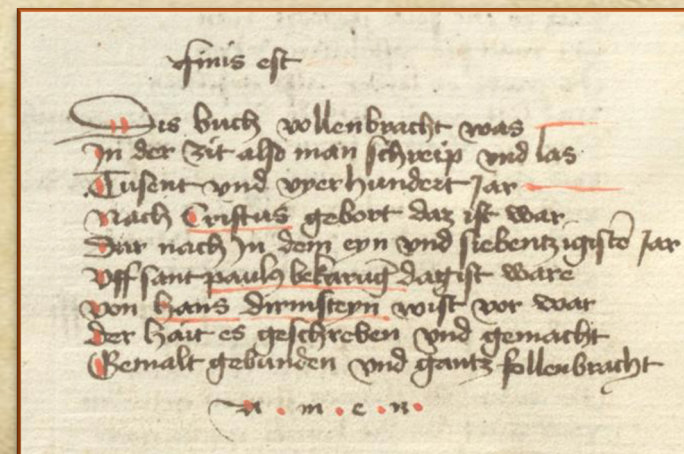 finis est
Dis buch vollenbracht was
In der zit also man schreip vnd las
Tusent vnd vyerhundert Jar
Nach Cristus gebort daz ist war
Dar nach Jn dem eyn vnd siebentzigistē Jar
Vff sant pauly bekarūg dag ist ware
von hans dirmsteyn wist vor war
der hait es geschreben vnd gemacht
Gemalt gebunden vnd gantz follenbracht
A . m . e . n .